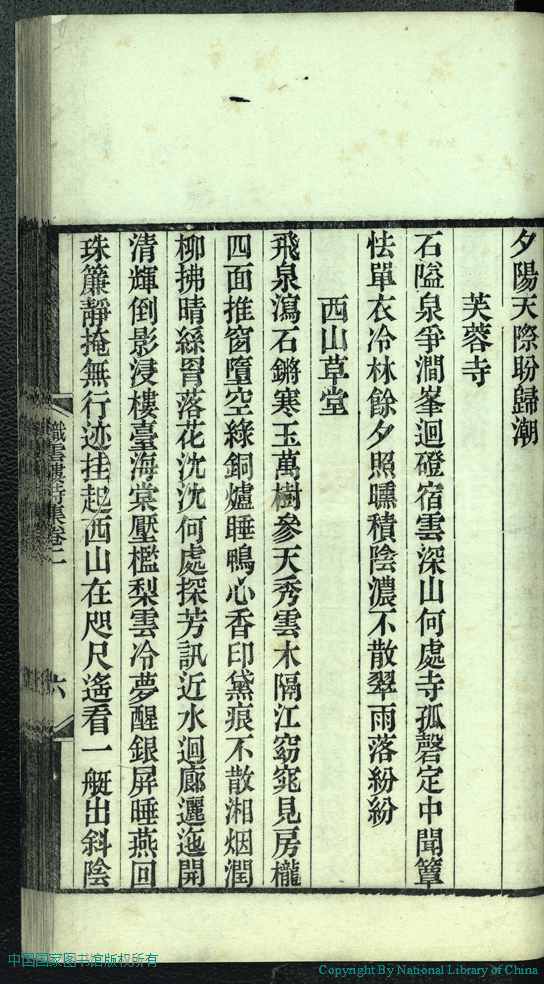 夕陽天際盼歸潮
芙蓉寺
石隘泉爭澗峯迴磴宿雲深山何處寺孤磬定中聞簟
怯單衣冷林餘夕照曛積陰濃不散翠雨落紛紛
西山草堂
飛泉瀉石鏘寒玉萬樹參天秀雲木隔江窈窕見房櫳
四面推窗墮空綠銅爐睡鴨心香印黛痕不散湘烟潤
柳拂晴絲罥落花沈沈何處探芳訊近水迴廊邐迤開
清輝倒影浸樓臺海棠壓檻梨雲冷夢醒銀屏睡燕回
珠簾靜掩無行迹挂起西山在咫尺遙看一艇出斜陰
織雲樓詩集卷二
六
中国国家图书馆版权所有
Copyright By National Library of China